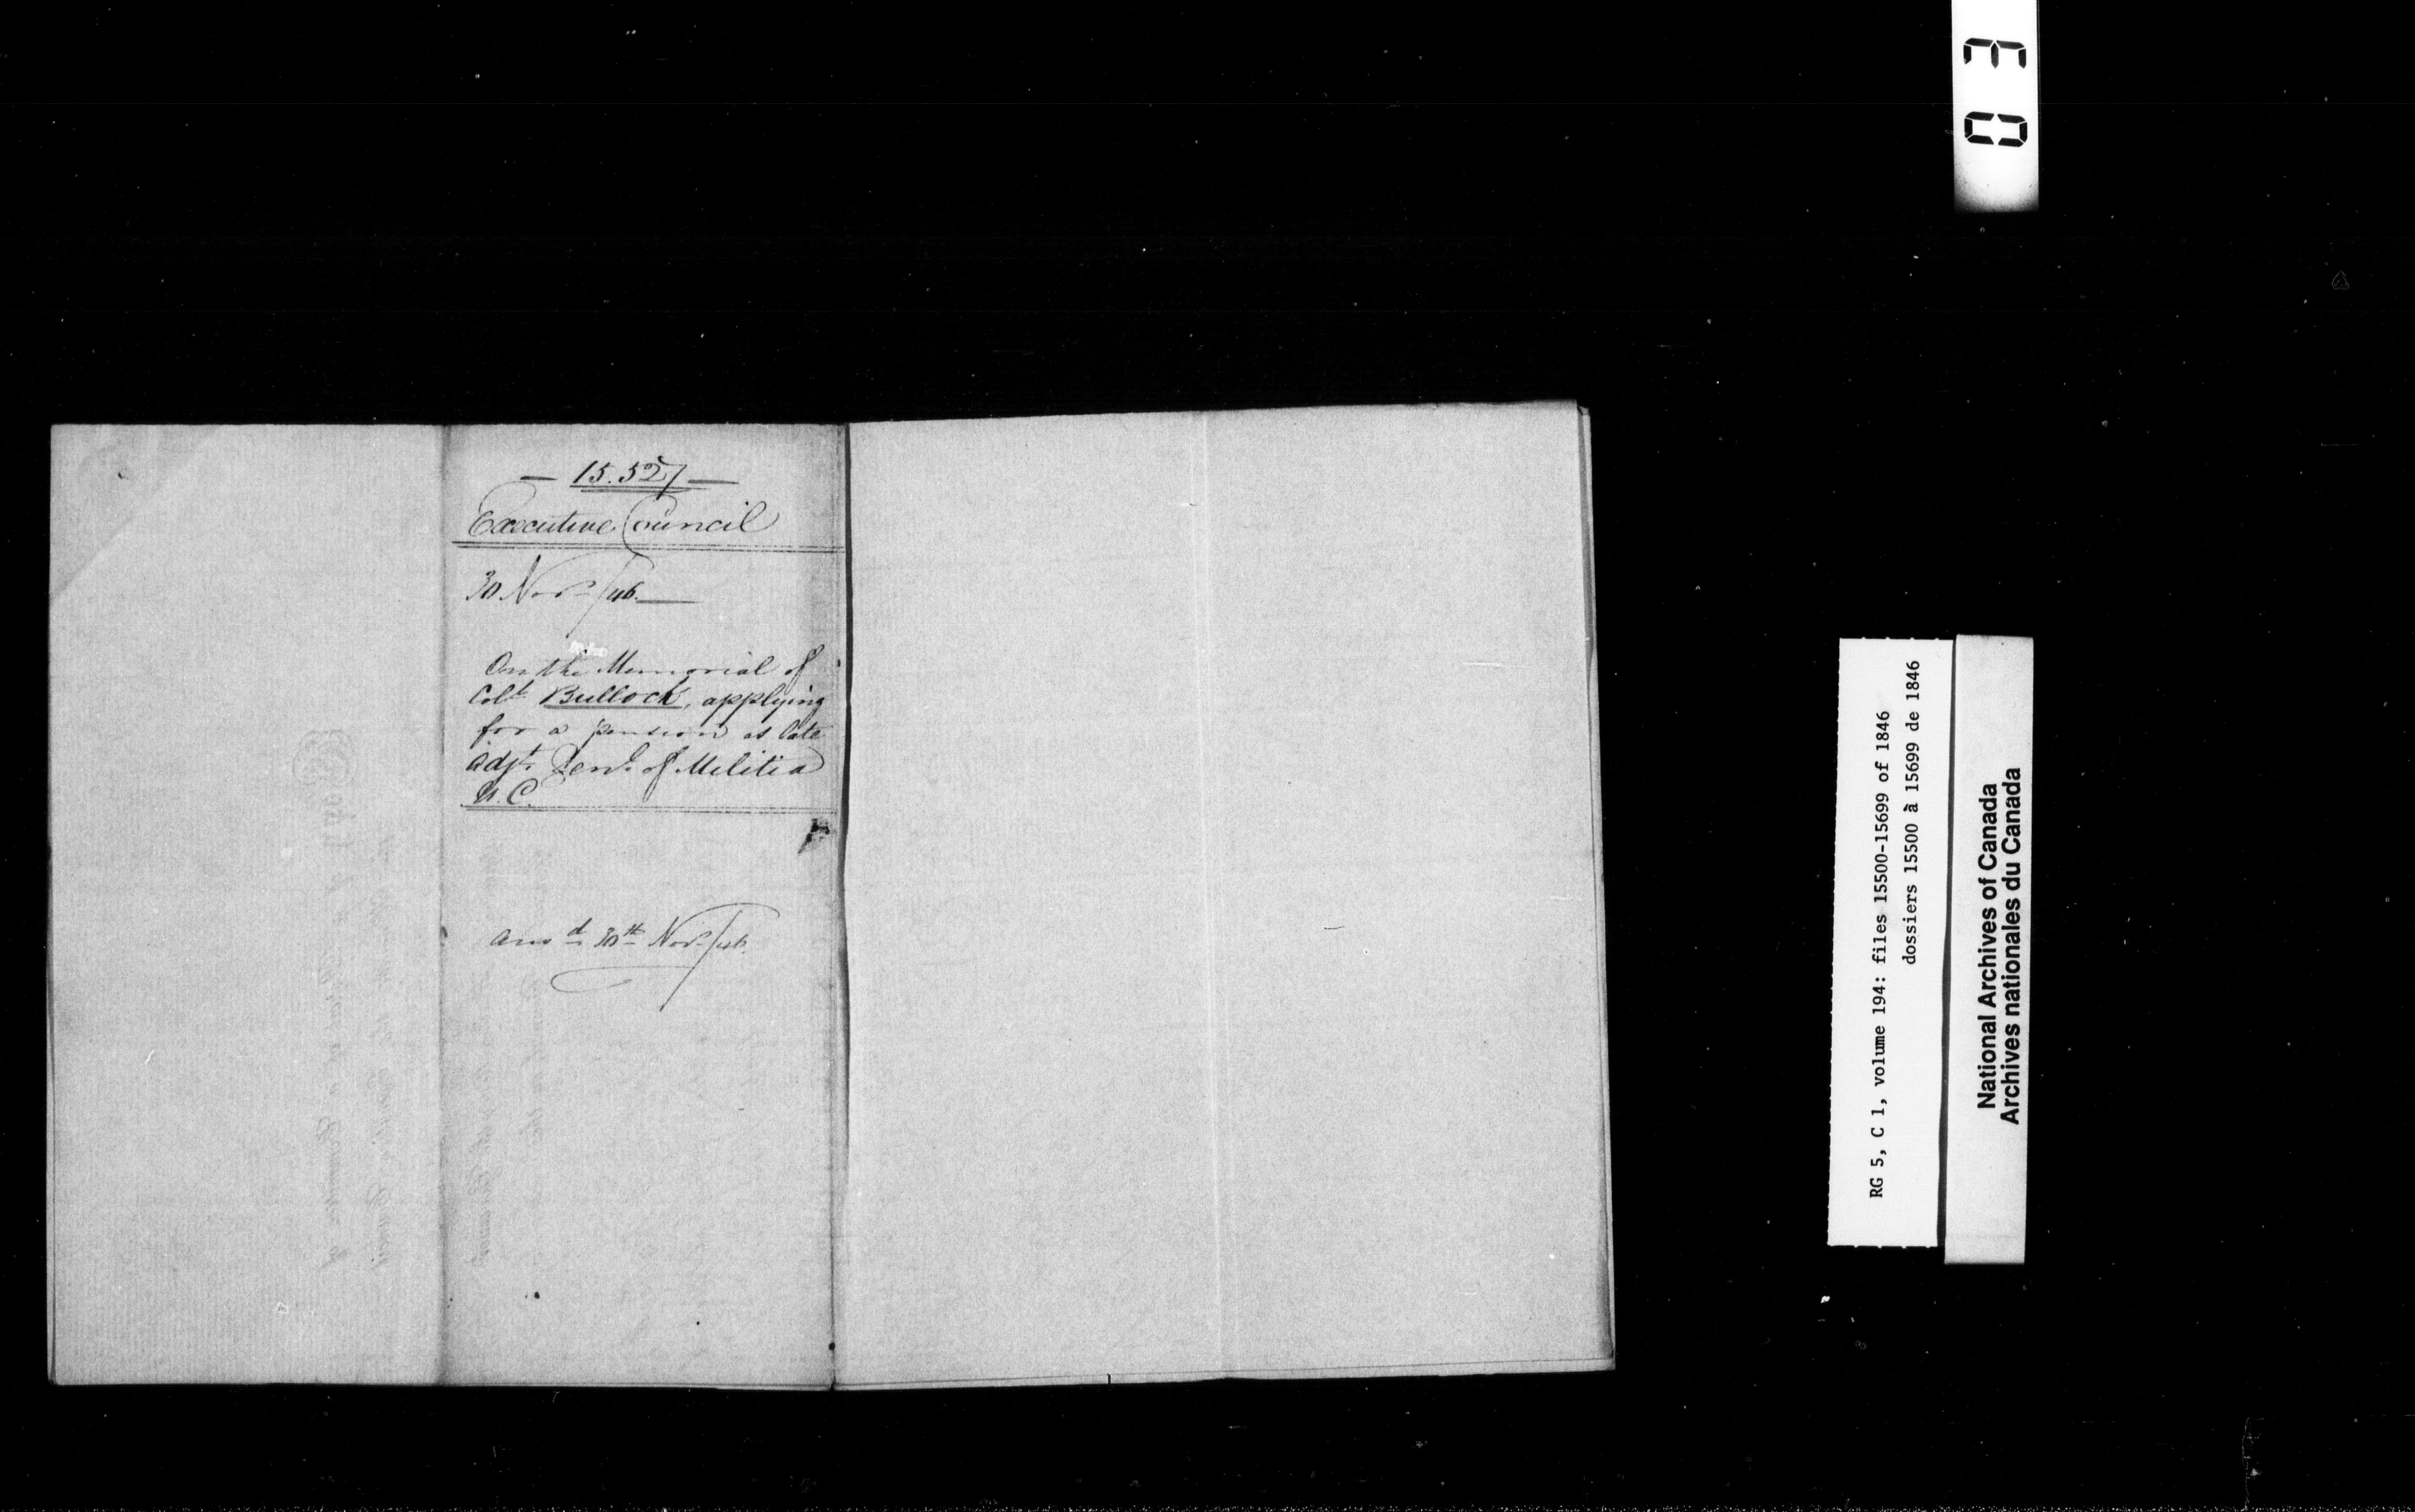 — 15.527 —
Executive Council
30 Novr /46.
On the Memorial of
Coll. Bullock, applying
for a pension as late
Adjt. Genl. of Militia
U.C.
Ansd 30th Novr /46.
03
RG 5, C 1, volume 194: files 15500-15699 of 1846
dossiers 15500 à 15699 de 1846
National Archives of Canada
Archives nationales du Canada